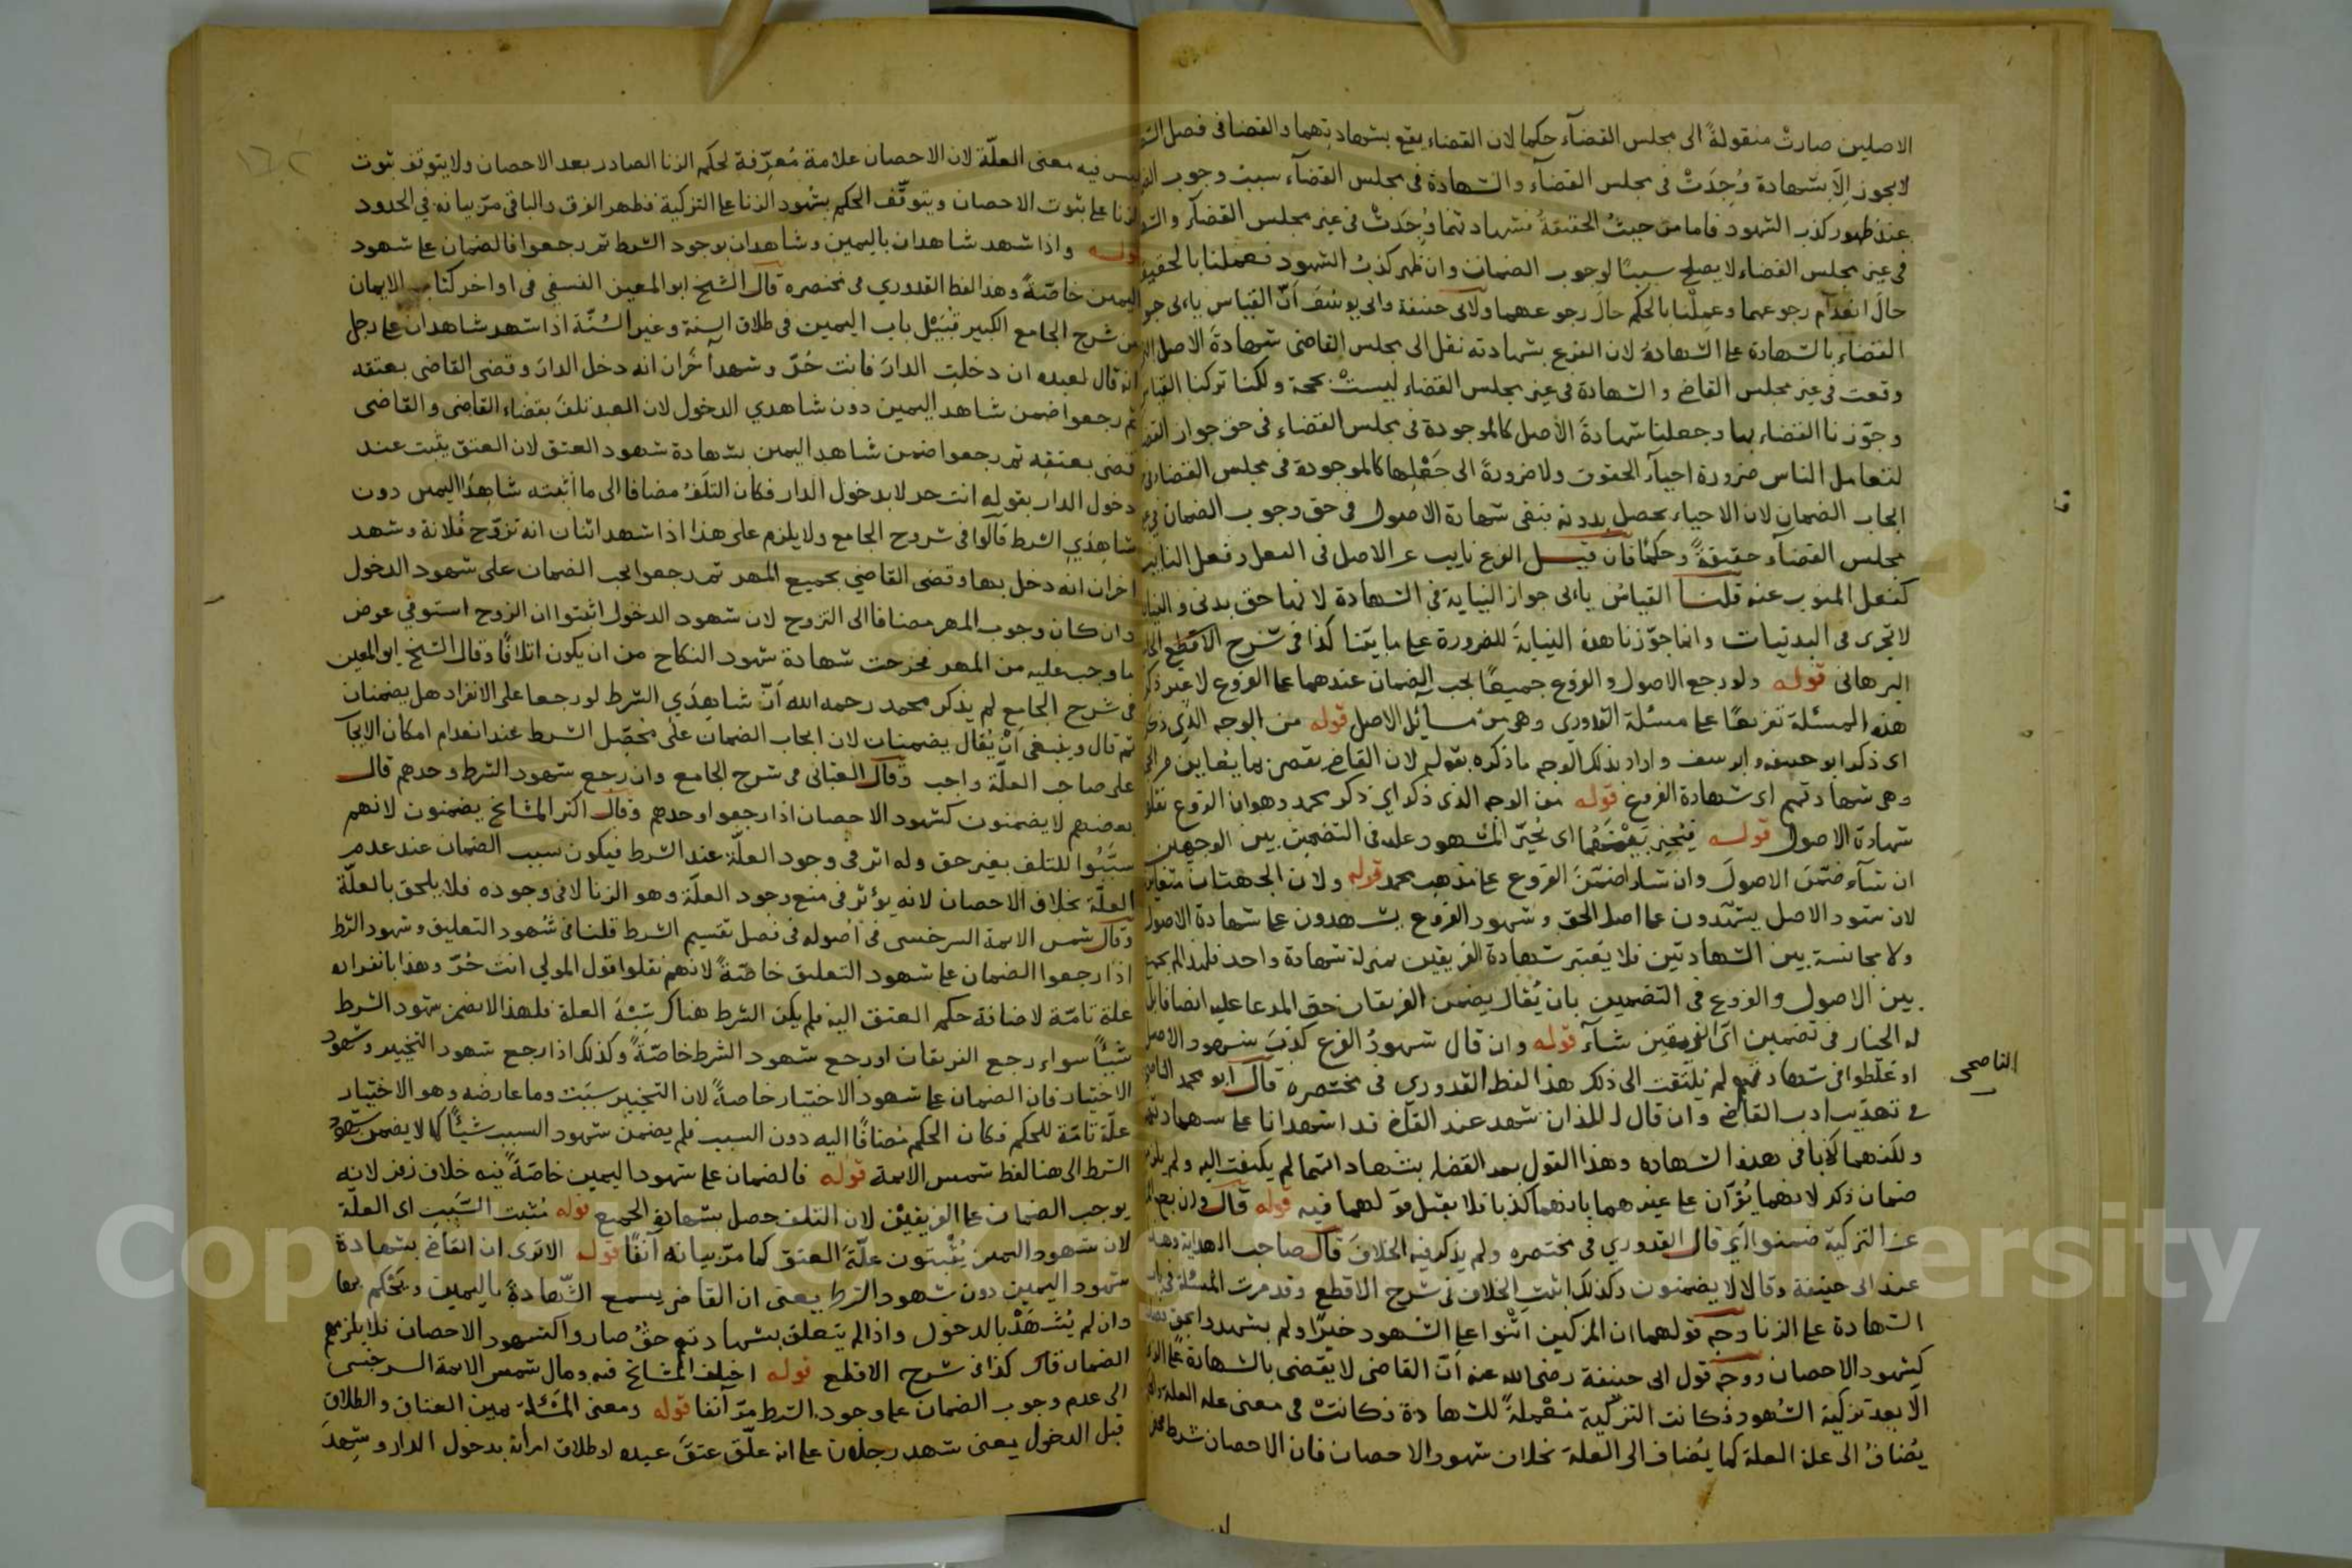 الاصلين صارت منقولةً الى مجلس القضآء حكما لان القضاء يقع بشهادتهما والقضا فى فصل
لا يجوز الّا بشهادة وُجِدَتْ فى مجلس القضآء والشهادة فى مجلس القضآء سبب وجوب
عند ظهور كذب الشهود فاما من حيثُ الحقيقةُ فشهادتهما وُجِدَتْ فى غير مجلس القضآء
فى غير مجلس القضاء لا يصلح سببًا لوجوب الضمان وان ظهر كذبُ الشهود فعملنا بالحقيقة
حالَ انعدآم رجوعهما وعمِلْنا بالحكم حالَ رجوعهما ولابى حنيفة وابى يوسُفَ انّ القياس يابى
القضاء بالشهادة على الشهادة لان الفرع بشهادته نقل الى مجلس القاضى شهادةَ الاصل
وقعت فى غير مجلس القاضى والشهادة فى غير مجلس القضاء ليستْ بحجة ولكنا تركنا القياس
وجوّزنا القضاء بها وجعلنا شهادةَ الاصل كالموجودة فى مجلس القضاء فى حق جواز
لتعامل الناس ضرورة احيآء الحقوق ولا ضرورةَ الى جَعْلِها كالموجودة فى مجلس القضاء
ايجاب الضمان لان الاحياء يحصل بدونه فبقى شهادة الاصول فى حق وجوب الضمان
مجلس القضآء حقيقةً وحكمًا فان قيل الفرع نايب عن الاصل فى الفعل وفعل النايب
كفعل المنوب عنه قلنا القياسُ يابى جواز النيابة فى الشهادة لانها حق بدنى
لا تجرى فى البدنيات وانما جوّزنا هذه النيابةَ للضرورة على ما بيّنا كذا فى شرح الاقطع
البرهانى قوله ولو رجع الاصول والفروع جميعًا يجب الضمان عندهما على الفروع لا غير
هذه المسئلة تفريعًا على مسئلة القدورى وهى من مسآئل الاصل قوله من الوجه الذى
اى ذكر ابو حنيفه وابو يوسف واراد بذلك الوجه ما ذكره بقوله لان القاضى يقضى بما يُعاين
وهى شهادتهم اى شهادة الفروع قوله من الوجه الذى ذكر اى ذكر محمد وهو ان الفروع
شهادة الاصول قوله فيُخيَّر بَيْنَهُما اى يُخيّر المشهود عليه فى التضمين بين الوجهين
ان شآء ضمّنَ الاصولَ وان شاء ضمّنَ الفروع على مذهب محمد قوله ولان الجهتان متغايرتان
لان شهود الاصل يشهدون على اصل الحق وشهود الفروع يشهدون على شهادة الاصول
ولا مجانسة بين الشهادتين فلا يُعتبر شهادة الفريقين بمنزلة شهادة واحد فلهذا لم يجمع
بين الاصول والفروع فى التضمين بان يُقال يضمن الفريقان حق المدعا عليه
له الخيار فى تضمين اىّ الفريقين شآء قوله وان قال شهودُ الفرع كذبَ شهود الاصل
او غلّطوا فى شهادتهم لم يُلتَفت الى ذلك هذا لفظ القدورى فى مختصره قال ابو محمد
الناصحى
فى تهذيب ادب القاضى وان قال اللذان شهدا عند القاضى قد اشهدانا على شهادتهما
ولكنهما كاذبا فى هذه الشهادة وهذا القول بعد القضاء بشهادتهما لم يلتفت اليه ولم
ضمان ذكر لانهما يُقرّان على غيرهما بانهما كذبا فلا يقبل قولهما فيه قوله قال وان رجع
عن التزكية ضمنوا اى قال القدورى فى مختصره ولم يذكر فيه الخلافَ قال صاحب الهداية وهذا
عند ابى حنيفة وقالا لا يضمنون وكذلك اثبت الخلاف فى شرح الاقطع وقد مرت المسئلة فى باب
الشهادة على الزنا وجه قولهما ان المزكين اثنوا على الشهود خيرًا ولم يشهدوا
كشهود الاحصان ووجه قول ابى حنيفة رضى الله عنه انّ القاضى لا يقضى بالشهادة
الّا بعد تزكية الشهود فكانت التزكية مُعْمِلةً للشهادة فكانت فى معنى علة العلة
يُضافُ الى علة العلة كما يُضاف الى العلة بخلاف شهود الاحصان فان الاحصان شرط
ليس فيه معنى العلّة لان الاحصان علامة مُعرِّفة لحكم الزنا الصادر بعد الاحصان ولا يتوقف ثبوت
الزنا على ثبوت الاحصان ويتوقّف الحكم بشهود الزنا على التزكية فظهر الفرق والباقى مرّ بيانه فى الحدود
قوله واذا شهد شاهدان باليمين وشاهدان بوجود الشرط ثم رجعوا فالضمان على شهود
اليمين خاصّةً وهذا لفظ القدورى فى مختصره قال الشيخ ابو المعين النسفى فى اواخر كتاب الايمان
من شرح الجامع الكبير قُبَيْل باب اليمين فى طلاق السنة وغير السُنّة اذا شهد شاهدان على رجل
انه قال لعبده ان دخلت الدارَ فانت حُرّ وشهد آخران انه دخل الدارَ وقضى القاضى بعتقه
ثم رجعوا ضمن شاهدا اليمين دون شاهدي الدخول لان العبد تلفَ بقضاء القاضى والقاضى
قضى بعتقه ثم رجعوا ضمن شاهدا اليمين بشهادة شهود العتق لان العتق يثبت عند
دخول الدار بقوله انت حر لا بدخول الدار فكان التلَفُ مضافا الى ما اثبته شاهدا اليمين دون
شاهِدَيِ الشرط قالوا فى شروح الجامع ولا يلزم على هذا اذا شهد اثنان انه تزوّج فُلانة وشهد
اخران انه دخل بها وقضى القاضي بجميع المهر ثم رجعوا يجب الضمان على شهود الدخول
وان كان وجوب المهر مضافا الى التزوج لان شهود الدخول اثبتوا ان الزوج استوفي عوض
ما وجب عليه من المهر فخرجت شهادة شهود النكاح من ان يكون اتلافًا وقال الشيخ ابو المعين
فى شرح الجامع لم يذكر محمد رحمه الله أنّ شاهِدَي الشرط لو رجعا على الانفراد هل يضمنان
ثم قال وينبغى أنْ يُقال يضمنان لان ايجاب الضمان على مُحصّل الشرط عند انعدام امكان الايجاب
على صاحب العلّة واجب وقال العتّابى فى شرح الجامع وان رجع شهود الشرط وحدهم قال
بعضهم لا يضمنون كشهود الاحصان اذا رجعوا وحدهم وقال اكثر المشايخ يضمنون لانهم
سبّبُوا للتلف بغير حق وله اثر فى وجود العلّة عند الشرط فيكون سبب الضمان عند عدم
العلّة بخلاف الاحصان لانه يؤثر فى منع وجود العلّة وهو الزنا لا فى وجوده فلا يلحق بالعلّة
وقال شمس الايمة السرخسى فى اُصوله فى فصل تقسيم الشرط قلنا فى شُهود التعليق وشهود الشرط
اذا رجعوا الضمان على شهود التعليق خاصّةً لانهم نقلوا قول المولي انت حُرّ وهذا بانفراده
علة تامّة لاضافة حكم العتق اليه فلم يكن الشرط هناك شِبْهَ العلة فلهذا لا يضمن شهود الشرط
شيئًا سواء رجع الفريقان او رجع شهود الشرط خاصّةً وكذلك اذا رجع شهود التخيير وشهود
الاختيار فان الضمان على شهود الاختيار خاصةً لان التخيير سبَبَ وما عارضه وهو الاختيار
علّة تامّة للحكم فكان الحكم مُضافًا اليه دون السبب فلم يضمن شهود السبب شيئًا كما لا يضمن شهود
الشرط الى هنا لفظ شمس الايمة قوله فالضمان على شهود اليمين خاصّةً فيه خلاف زفر لانه
يوجب الضمان على الفريقيْن لان التلف حصل بشهادةِ الجميع قوله مُثبِت السّبَبِ اى العلّة
لان شهود اليمين يُثْبِتون علّةَ العتق كما مرّ بيانه آنفًا قوله الا ترى ان القاضى بشهادة
شهود اليمين دون شهود الشرط يعنى ان القاضى يسمع الشّهادةَ باليمين ويَحْكُم بها
وان لم يُشْهَدْ بالدخول واذا لم يتعلق بشهادتهم حقٌ صاروا كشهود الاحصان فلا يلزمهم
الضمان قال كذا فى شرح الاقطع قوله اختلف المشايخ فيه ومال شمس الايمة السرخسى
الى عدم وجوب الضمان على وجود الشرط مرّ آنفا قوله ومعنى المسْئلة يمين العتاق والطلاق
قبل الدخول يعنى شهد رجلان على انه علّق عتقَ عبده او طلاق امرأته بدخول الدار وشهِدَ
Copyright © University